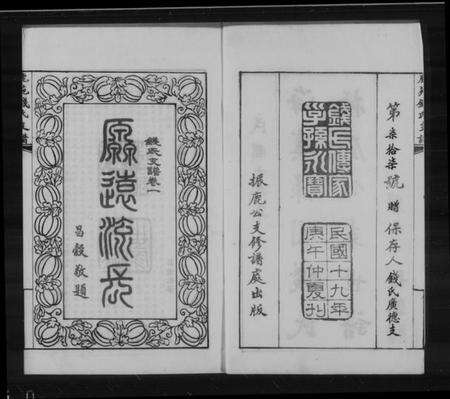 第柒拾柒號 贈 保存人 錢氏廣德支
錢氏傳家
子孫永寶
民國十九年
庚午仲夏刊
振鹿公支修譜處出版
錢氏支譜卷一
源遠流長
昌穀敬題